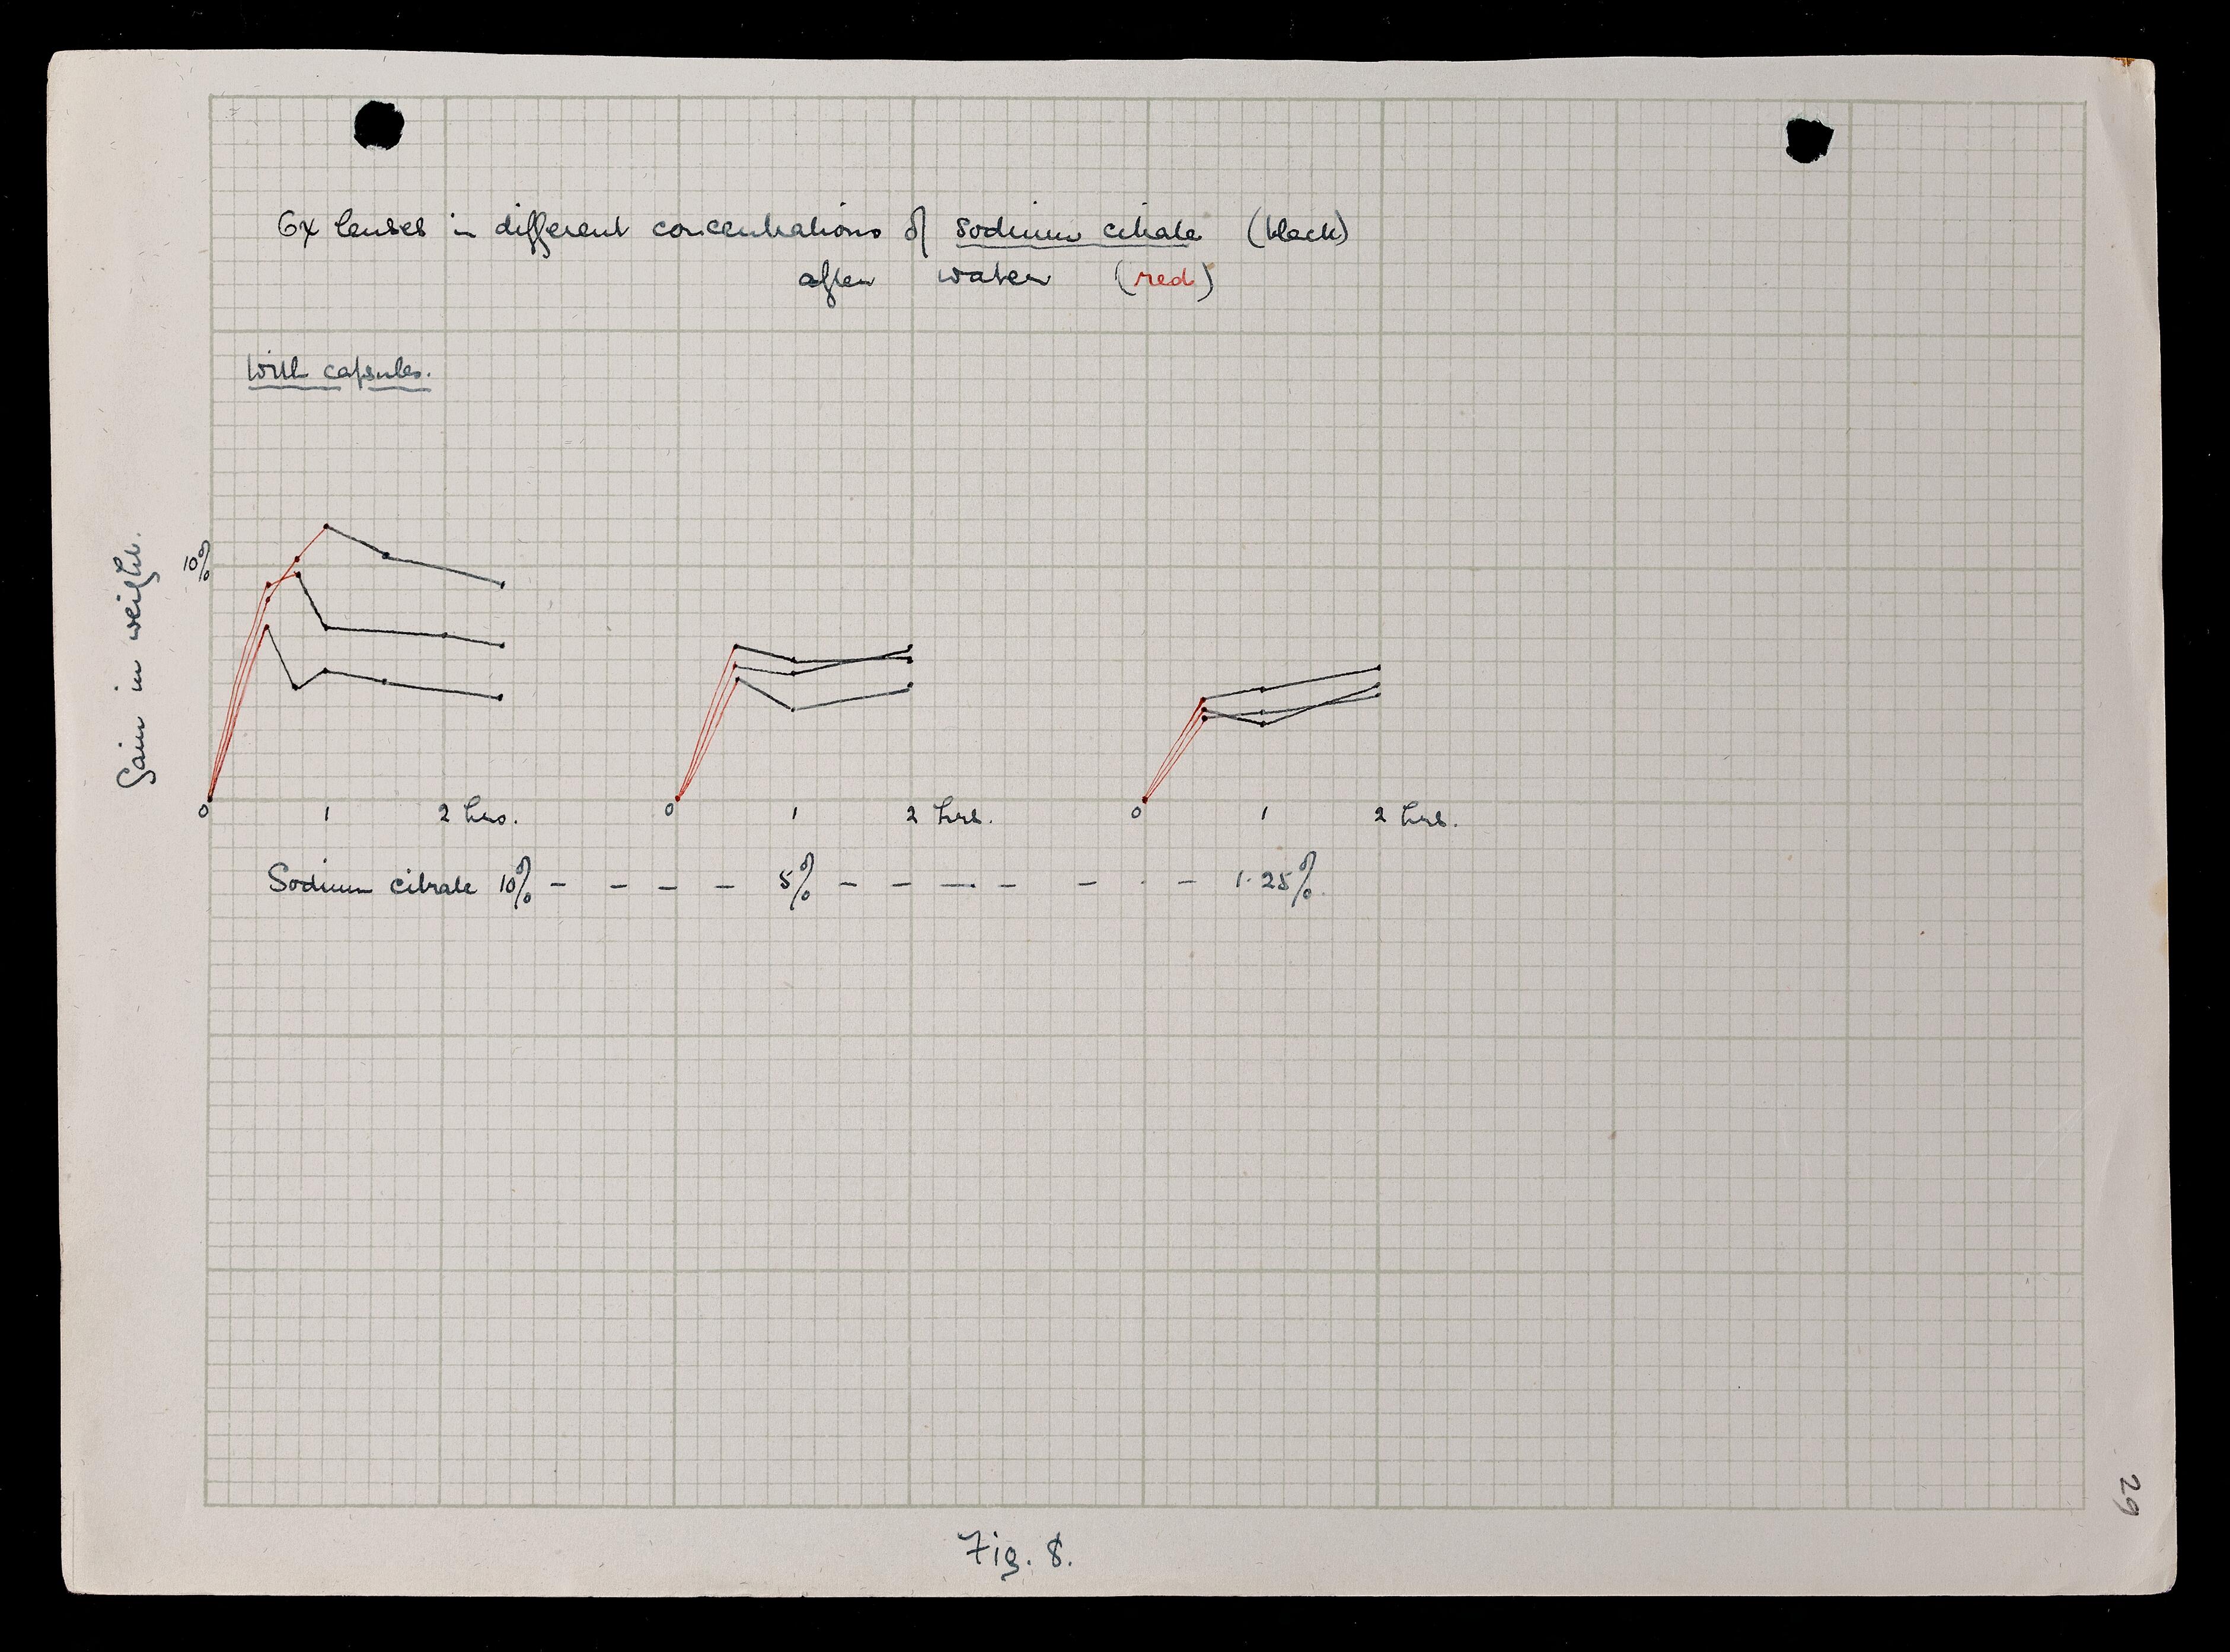 Ox lenses in different concentrations of sodium citrate (black)
after water (red)
With capsules.
Gain in weight.
10%
0 1 2 hrs. 0 1 2 hrs. 0 1 2 hrs.
Sodium citrate 10% - - - - 5% - - - - - - - 1.25%
Fig. 8.
29